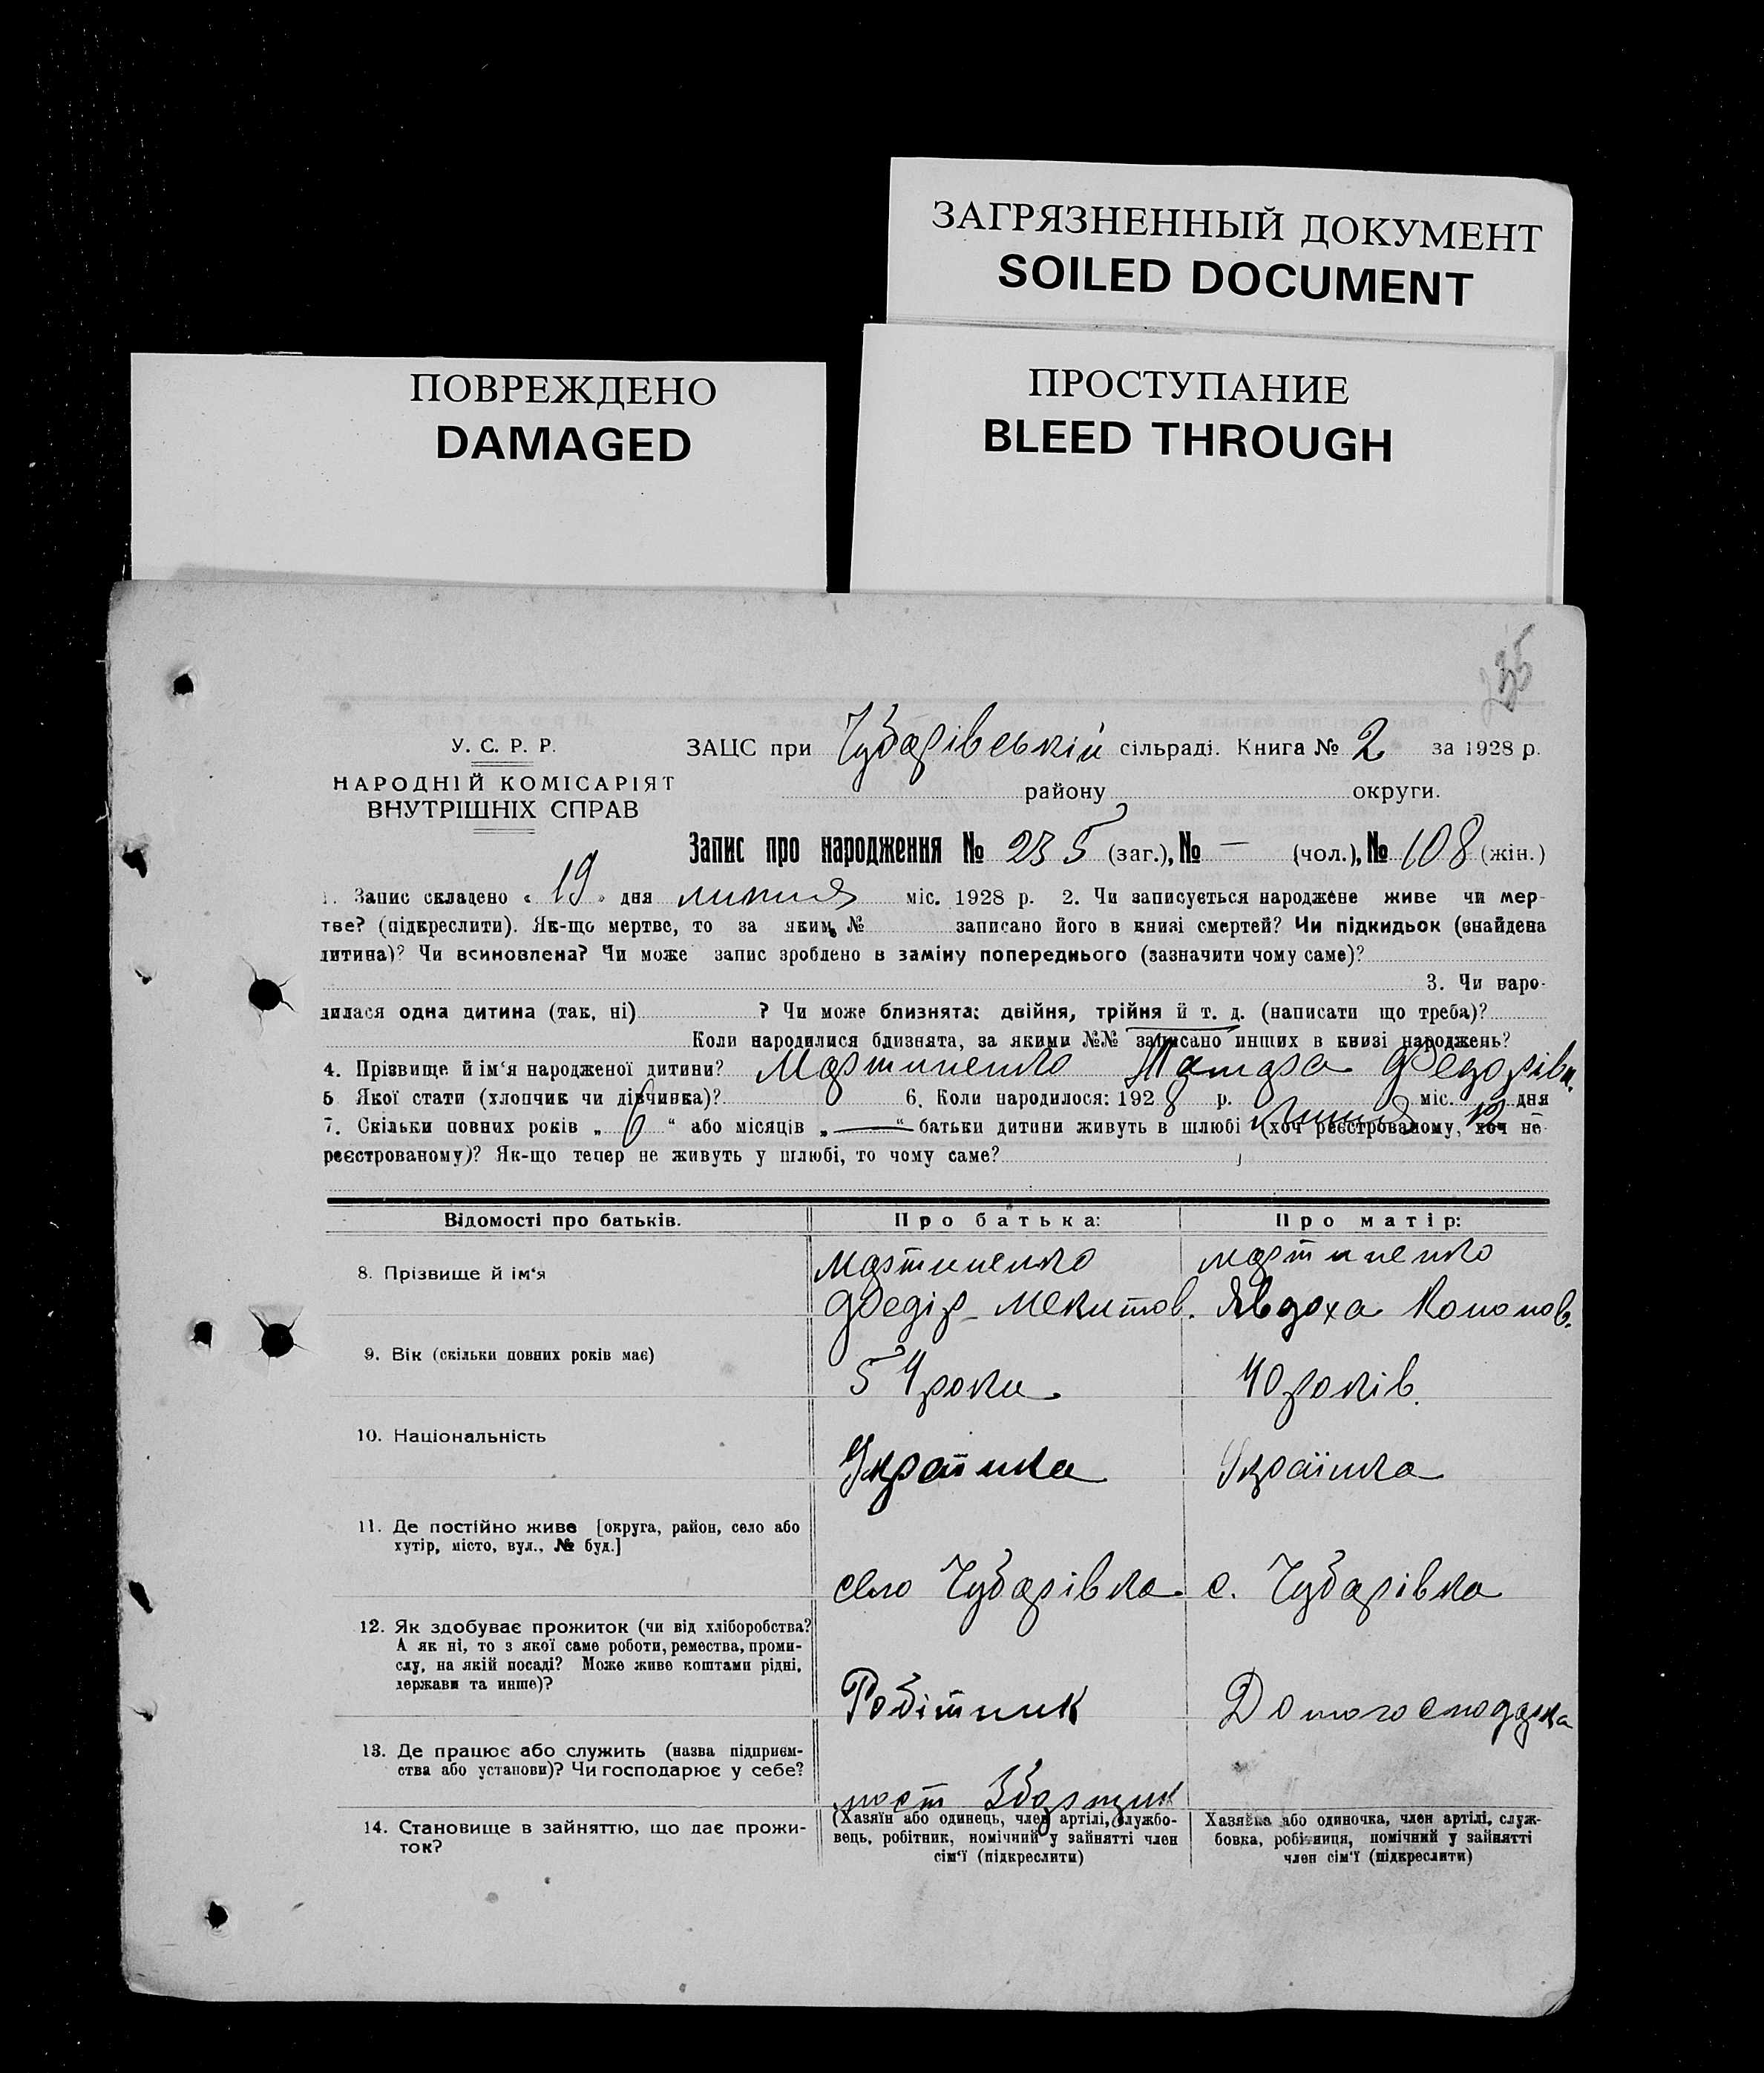 ЗАГРЯЗНЕННЫЙ ДОКУМЕНТ
SOILED DOCUMENT
ПОВРЕЖДЕНО
DAMAGED
ПРОСТУПАНИЕ
BLEED THROUGH
235
У. С. Р. Р.
НАРОДНІЙ КОМІСАРІЯТ
ВНУТРІШНІХ СПРАВ
ЗАЦС при Чубарівській сільраді. Книга № 2 за 1928 р.
району округи.
Запис про народження № 235 (заг.), № — (чол.), № 108 (жін.)
1. Запис складено „ 19 " дня липня міс. 1928 р. 2. Чи записується народжене живе чи мер-
тве? (підкреслити). Як-що мертве, то за яким № записано його в книзі смертей? Чи підкидьок (знайдена
дитина)? Чи всиновлена? Чи може запис зроблено в заміну попереднього (зазначити чому саме)?
3. Чи наро-
дилася одна дитина (так, ні) ? Чи може близнята: двійня, трійня й т. д. (написати що треба)?
Коли народилися близнята, за якими №№ записано инших в книзі народжень?
4. Прізвище й ім'я народженої дитини? Мартиненко Тамара Федорівн.
5 Якої стати (хлопчик чи дівчинка)? 6. Коли народилося: 1928 р. липня міс. дня
7. Скільки повних років „ 6 " або місяців „ — " батьки дитини живуть в шлюбі (хоч реєстрованому, хоч не
реєстрованому)? Як-що тепер не живуть у шлюбі, то чому саме?
Відомості про батьків. Про батька: Про матір:
8. Прізвище й ім'я Мартиненко Мартиненко
Федір Мекитов. Явдоха Кононов.
9. Вік (скільки повних років має) 54 роки 40 років.
10. Національність Українка Українка
11. Де постійно живе [округа, район, село або
хутір, місто, вул., № буд.]
село Чубарівка с. Чубарівка
12. Як здобуває прожиток (чи від хліборобства?
А як ні, то з якої саме роботи, ремества, проми-
слу, на якій посаді? Може живе коштами рідні,
держави та инше)?
Робітник Домогосподарка
13. Де працює або служить (назва підприєм-
ства або установи)? Чи господарює у себе?
14. Становище в зайняттю, що дає прожи-
ток?
(Хазяїн або одинець, член артілі, службо-
вець, робітник, помічний у зайнятті член
сім'ї (підкреслити)
Хазяйка або одиночка, член артілі, служ-
бовка, робітниця, помічний у зайнятті
член сім'ї (підкреслити)